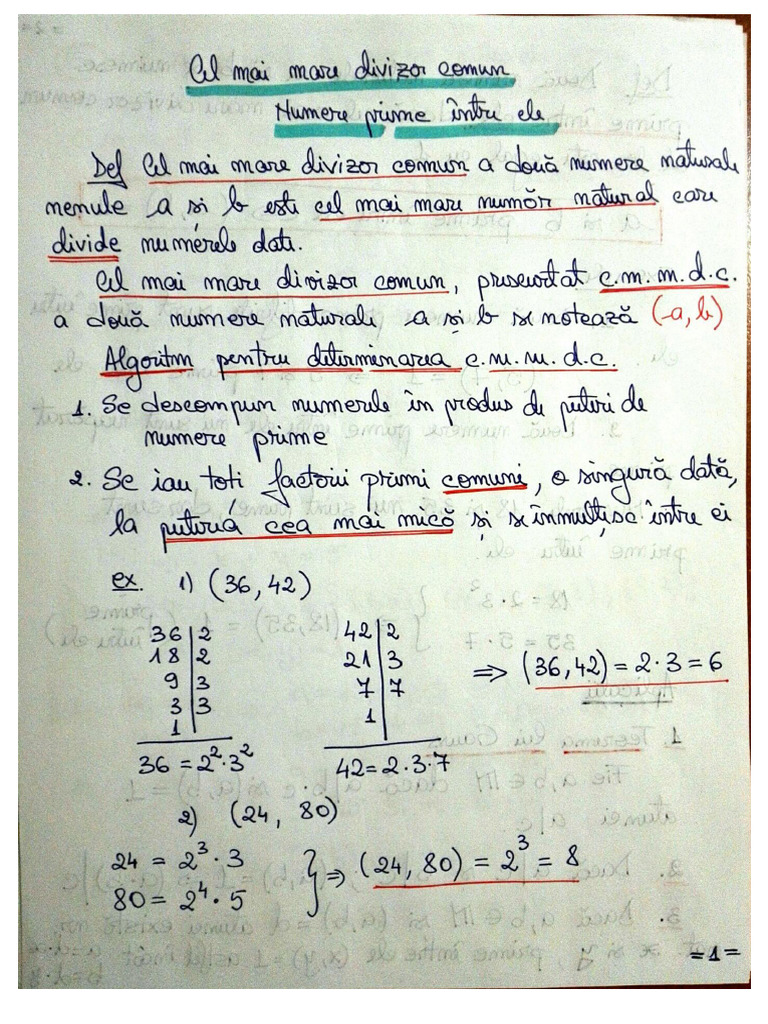 Cel mai mare divizor comun
Numere prime între ele
Def Cel mai mare divizor comun a două numere naturale
nenule a și b este cel mai mare număr natural care
divide numerele date.
Cel mai mare divizor comun, prescurtat c.m.m.d.c.
a două numere naturale a și b se notează (a, b)
Algoritm pentru determinarea c.m.m.d.c.
1. Se descompun numerele în produs de puteri de
numere prime
2. Se iau toti factorii primi comuni, o singură dată,
la puterea cea mai mică și se înmulțesc între ei
ex. 1) (36, 42)
36 | 2 42 | 2
18 | 2 21 | 3 ⟹ (36, 42) = 2·3 = 6
9 | 3 7 | 7
3 | 3 1
1
36 = 2²·3² 42 = 2·3·7
2) (24, 80)
24 = 2³·3 } ⇒ (24, 80) = 2³ = 8
80 = 2⁴·5
=1=